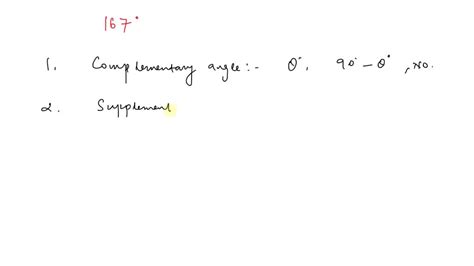 167°
1. Complementary angle:- θ°, 90° - θ°, no.
2. Supplement